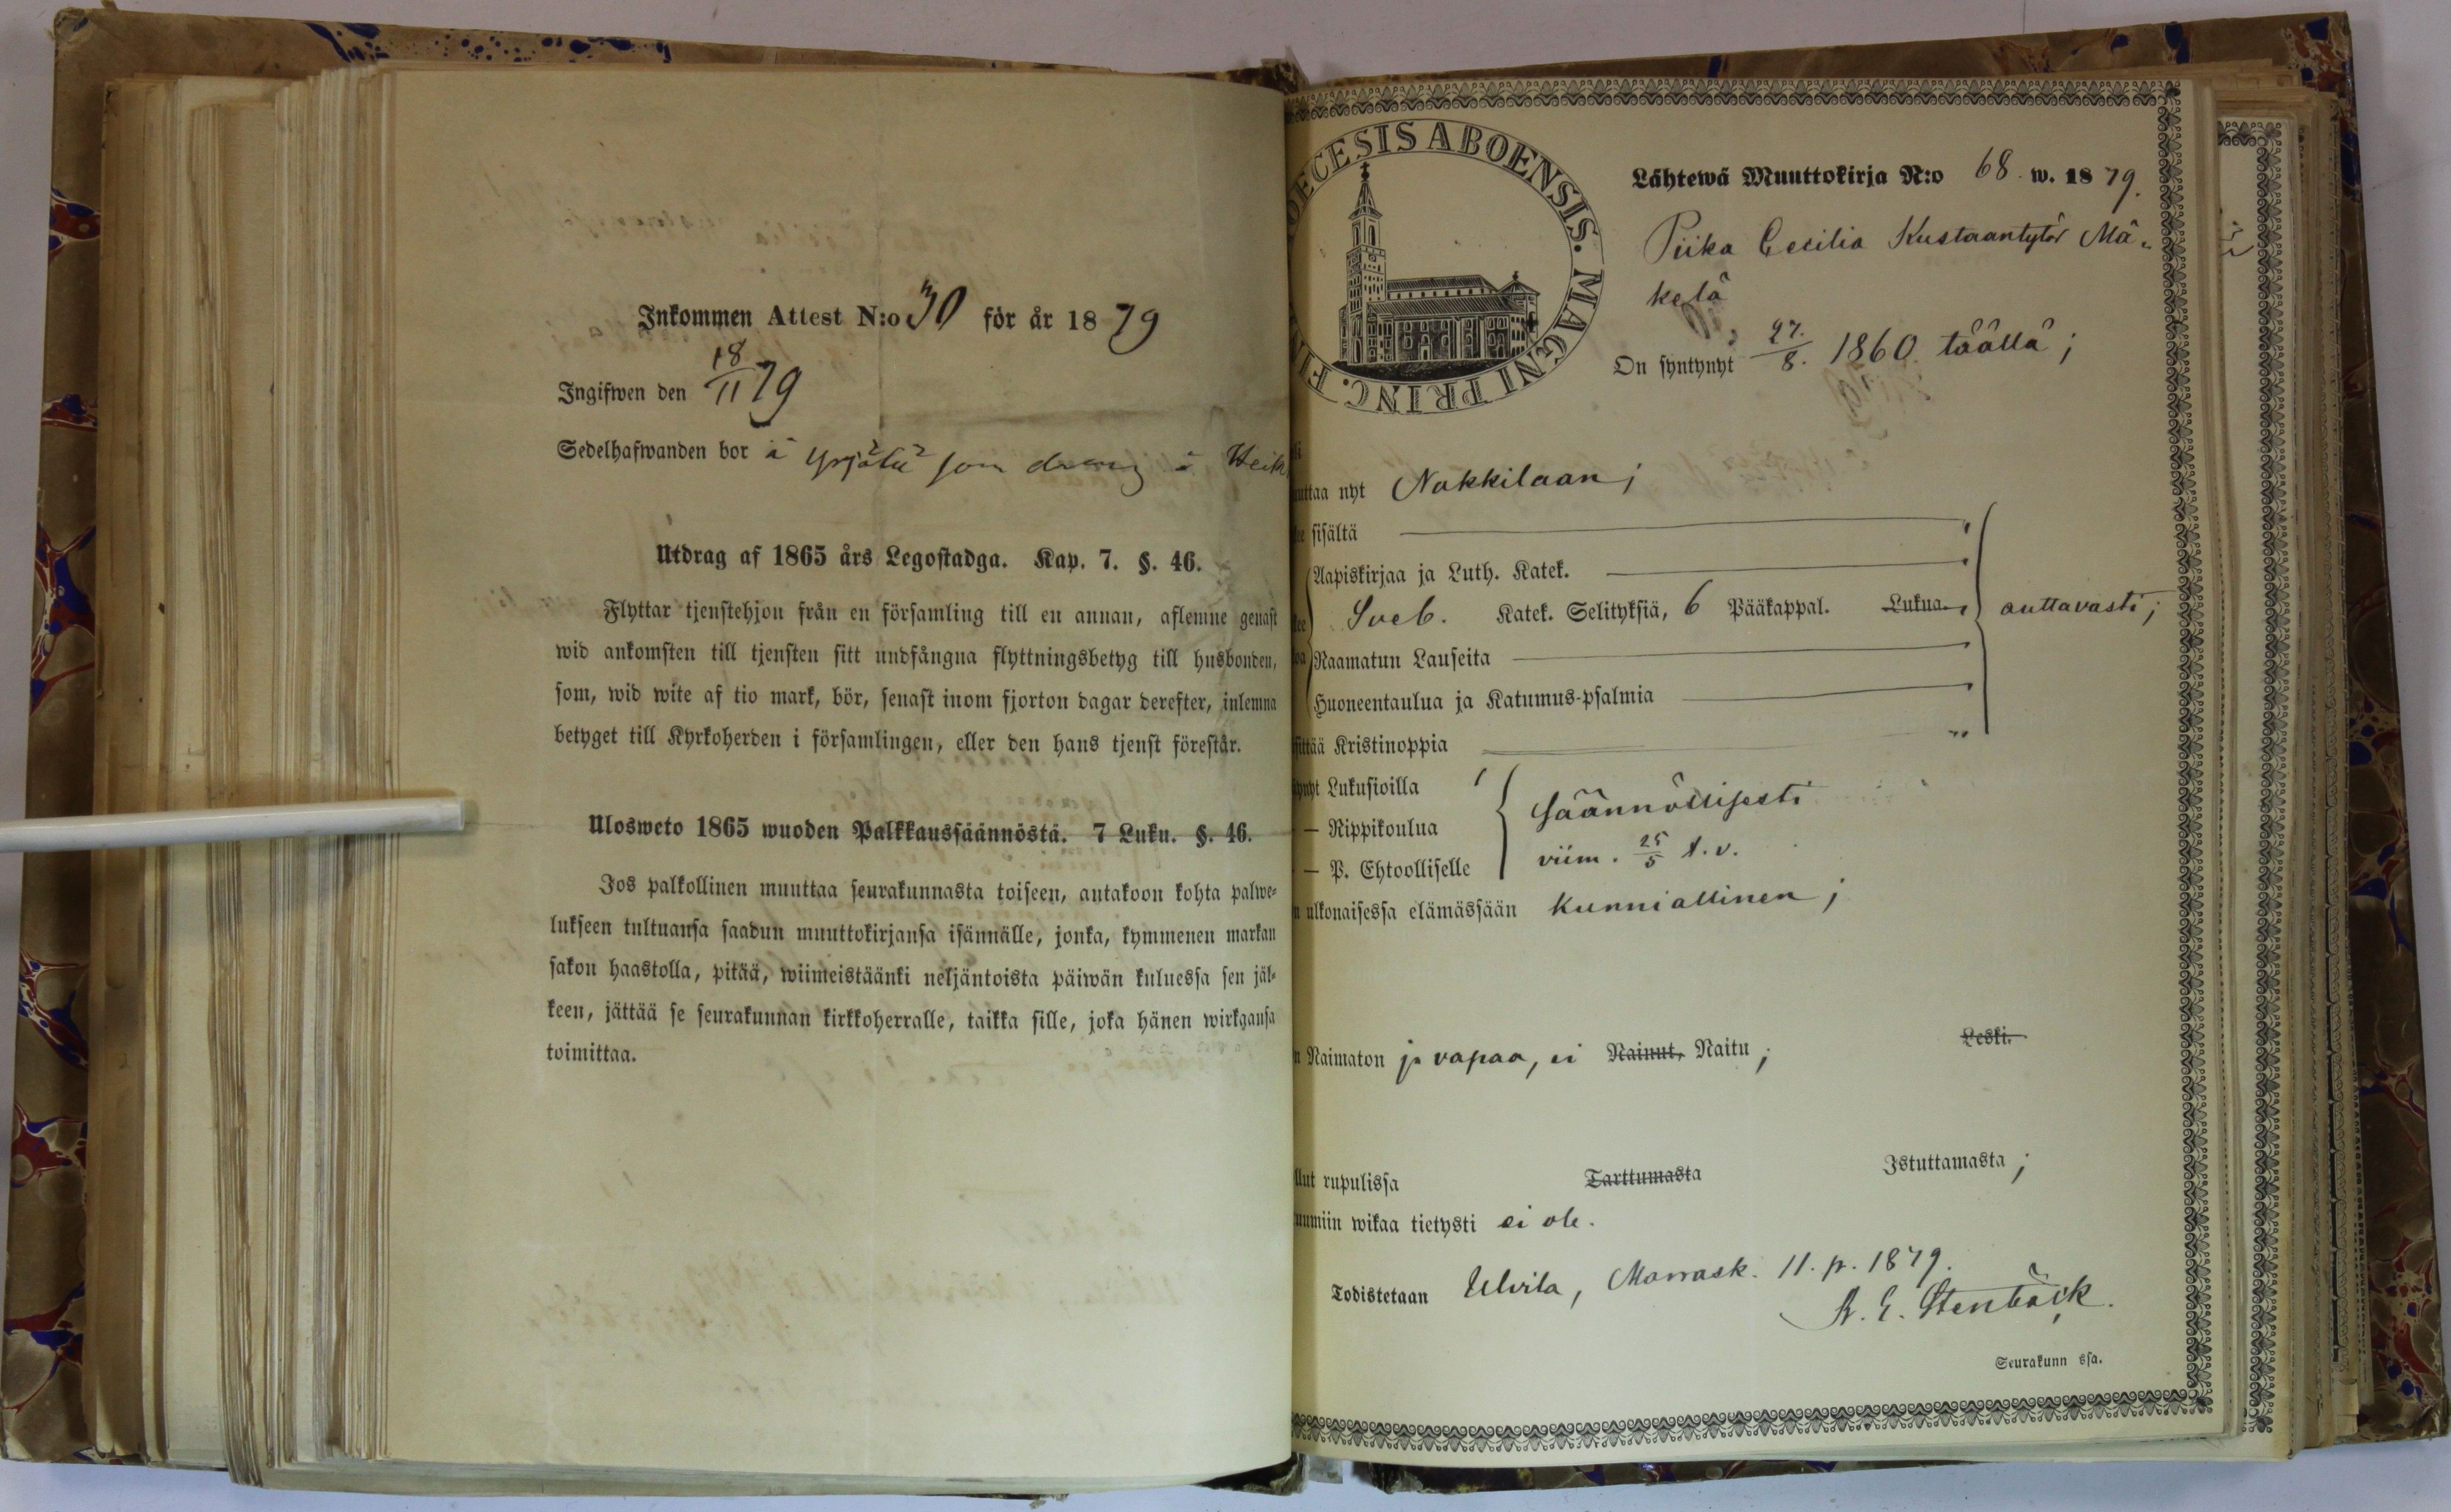 Inkommen Attest N:o 30 för år 1879
Ingifwen den 18/11 79
Sedelhafwanden bor å Yrjälä som dräng å Heik
Utdrag af 1865 års Legostadga. Kap. 7. §. 46.
Flyttar tjenstehjon från en församling till en annan, aflemne genast
wid ankomsten till tjensten sitt undfångna flyttningsbetyg till husbonden,
som, wid wite af tio mark, bör, senast inom fjorton dagar derefter, inlemna
betyget till Kyrkoherden i församlingen, eller den hans tjenst förestår.
Ulosweto 1865 wuoden Palkkaussäännöstä. 7 Luku. §. 46.
Jos palkollinen muuttaa seurakunnasta toiseen, antakoon kohta palwe-
lukseen tultuansa saadun muuttokirjansa isännälle, jonka, kymmenen markan
sakon haastolla, pitää, wiimeistäänki neljäntoista päiwän kuluessa sen jäl-
keen, jättää se seurakunnan kirkkoherralle, taikka sille, joka hänen wirkaansa
toimittaa.
OECESIS ABOENSIS. MAGNI PRINC. FIN
Lähtewä Muuttokirja N:o 68. w. 1879.
Piika Cecilia Kustaantytär Mä-
kelä
On syntynyt 27/8. 1860 täällä;
uttaa nyt Nakkilaan;
sisältä
Aapiskirjaa ja Luth. Katek.
Sveb. Katek. Selityksiä, 6 Pääkappal. Lukua. auttavasti;
Raamatun Lauseita
Huoneentaulua ja Katumus-psalmia
sittää Kristinoppia
ynyt Lukusioilla
säännöllisesti
— Rippikoulua
— P. Ehtoolliselle viim. 25/5 t.v.
n ulkonaisessa elämässään kunniallinen;
n Naimaton ja vapaa, ei Nainut, Naitu; Leski.
llut rupulissa Tarttumasta Istuttamasta;
uumiin wikaa tietysti ei ole.
Todistetaan Ulvila, Marrask. 11. p. 1879.
A. E. Stenbäck.
Seurakunn ssa.